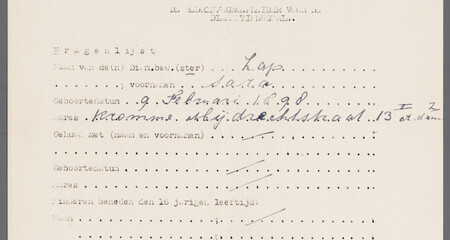 Vragenlijst
Naam van de(n) Dienw.bew.(ster) . . . Zap . . .
. . . . . . . ; voornamen . . . Sara . . .
Geboortedatum . 9 Februari 1898 . . .
Adres . Kromme Mijdrechtstraat 13 I A'dam 2
Gehuwd met (naam en voornamen) . . . . . .
Geboortedatum . . . . . .
Adres . . . . . .
Kinderen beneden den 16 jarigen leeftijd:
Naam . . . . . .